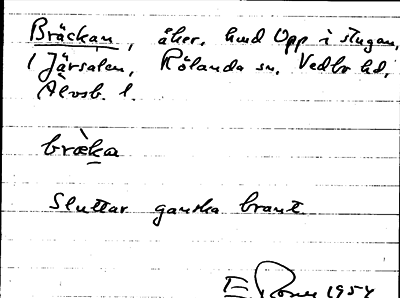 Bräckan, åker, hmd Upp i stugan,
i Järsalen, Rölanda sn, Vedbo hd,
Älvsb. l.
bræ̀ka
Sluttar ganska brant.
E 1954